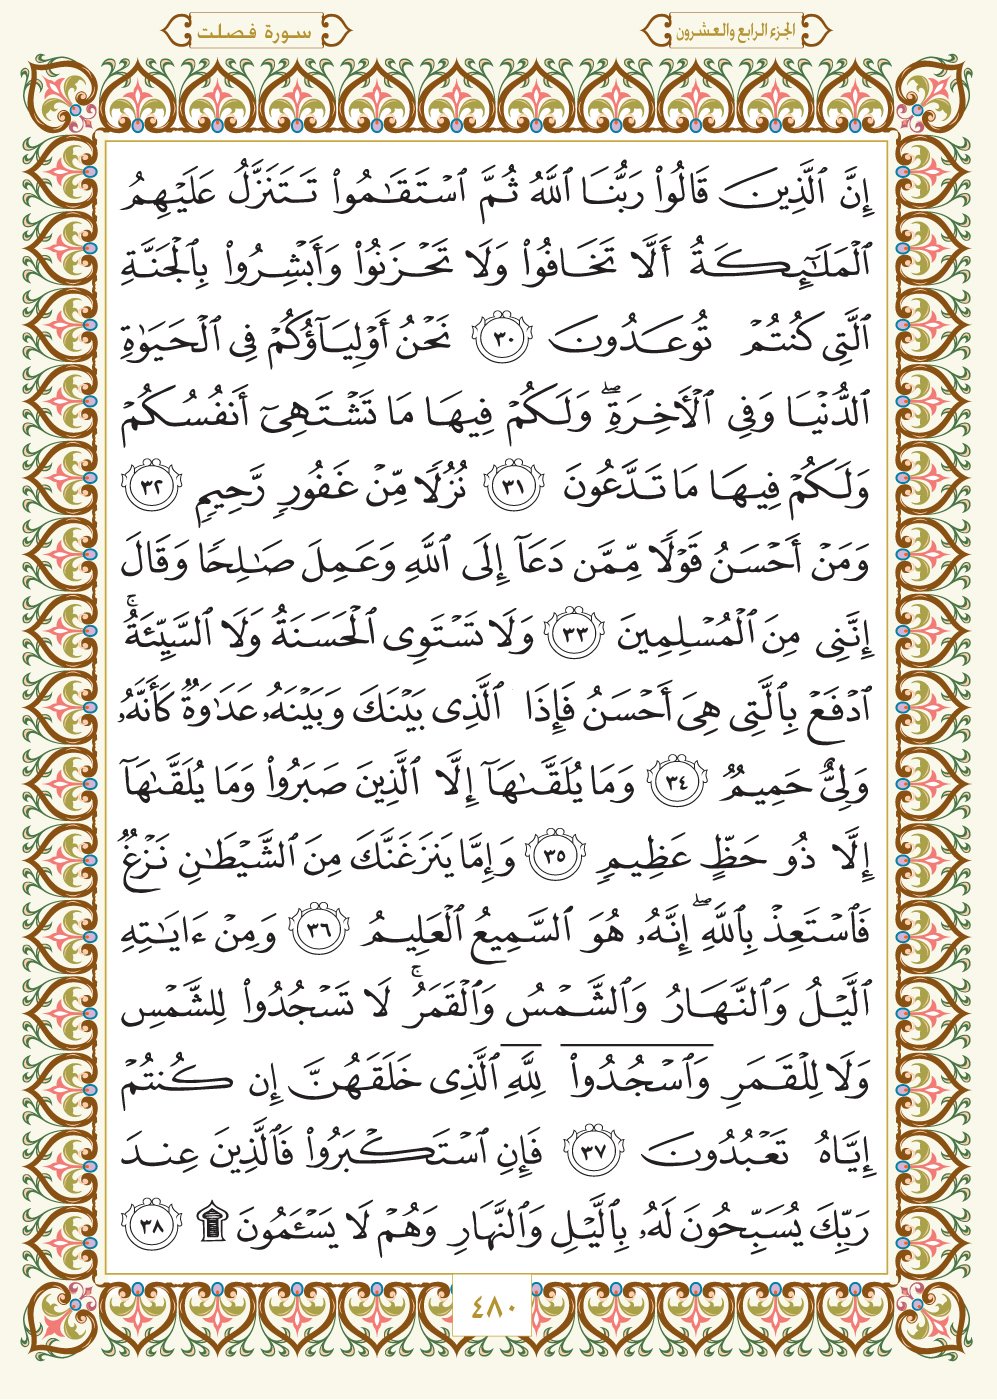 الجزء الرابع والعشرون
سورة فصلت
إِنَّ ٱلَّذِينَ قَالُوا۟ رَبُّنَا ٱللَّهُ ثُمَّ ٱسْتَقَـٰمُوا۟ تَتَنَزَّلُ عَلَيْهِمُ
ٱلْمَلَـٰٓئِكَةُ أَلَّا تَخَافُوا۟ وَلَا تَحْزَنُوا۟ وَأَبْشِرُوا۟ بِٱلْجَنَّةِ
ٱلَّتِى كُنتُمْ تُوعَدُونَ ٣٠ نَحْنُ أَوْلِيَآؤُكُمْ فِى ٱلْحَيَوٰةِ
ٱلدُّنْيَا وَفِى ٱلْـَٔاخِرَةِ ۖ وَلَكُمْ فِيهَا مَا تَشْتَهِىٓ أَنفُسُكُمْ
وَلَكُمْ فِيهَا مَا تَدَّعُونَ ٣١ نُزُلًا مِّنْ غَفُورٍ رَّحِيمٍ ٣٢
وَمَنْ أَحْسَنُ قَوْلًا مِّمَّن دَعَآ إِلَى ٱللَّهِ وَعَمِلَ صَـٰلِحًا وَقَالَ
إِنَّنِى مِنَ ٱلْمُسْلِمِينَ ٣٣ وَلَا تَسْتَوِى ٱلْحَسَنَةُ وَلَا ٱلسَّيِّئَةُ ۚ
ٱدْفَعْ بِٱلَّتِى هِىَ أَحْسَنُ فَإِذَا ٱلَّذِى بَيْنَكَ وَبَيْنَهُۥ عَدَٰوَةٌ كَأَنَّهُۥ
وَلِىٌّ حَمِيمٌ ٣٤ وَمَا يُلَقَّىٰهَآ إِلَّا ٱلَّذِينَ صَبَرُوا۟ وَمَا يُلَقَّىٰهَآ
إِلَّا ذُو حَظٍّ عَظِيمٍ ٣٥ وَإِمَّا يَنزَغَنَّكَ مِنَ ٱلشَّيْطَـٰنِ نَزْغٌ
فَٱسْتَعِذْ بِٱللَّهِ ۖ إِنَّهُۥ هُوَ ٱلسَّمِيعُ ٱلْعَلِيمُ ٣٦ وَمِنْ ءَايَـٰتِهِ
ٱلَّيْلُ وَٱلنَّهَارُ وَٱلشَّمْسُ وَٱلْقَمَرُ ۚ لَا تَسْجُدُوا۟ لِلشَّمْسِ
وَلَا لِلْقَمَرِ وَٱسْجُدُوا۟ لِلَّهِ ٱلَّذِى خَلَقَهُنَّ إِن كُنتُمْ
إِيَّاهُ تَعْبُدُونَ ٣٧ فَإِنِ ٱسْتَكْبَرُوا۟ فَٱلَّذِينَ عِندَ
رَبِّكَ يُسَبِّحُونَ لَهُۥ بِٱلَّيْلِ وَٱلنَّهَارِ وَهُمْ لَا يَسْـَٔمُونَ ۩ ٣٨
٤٨٠